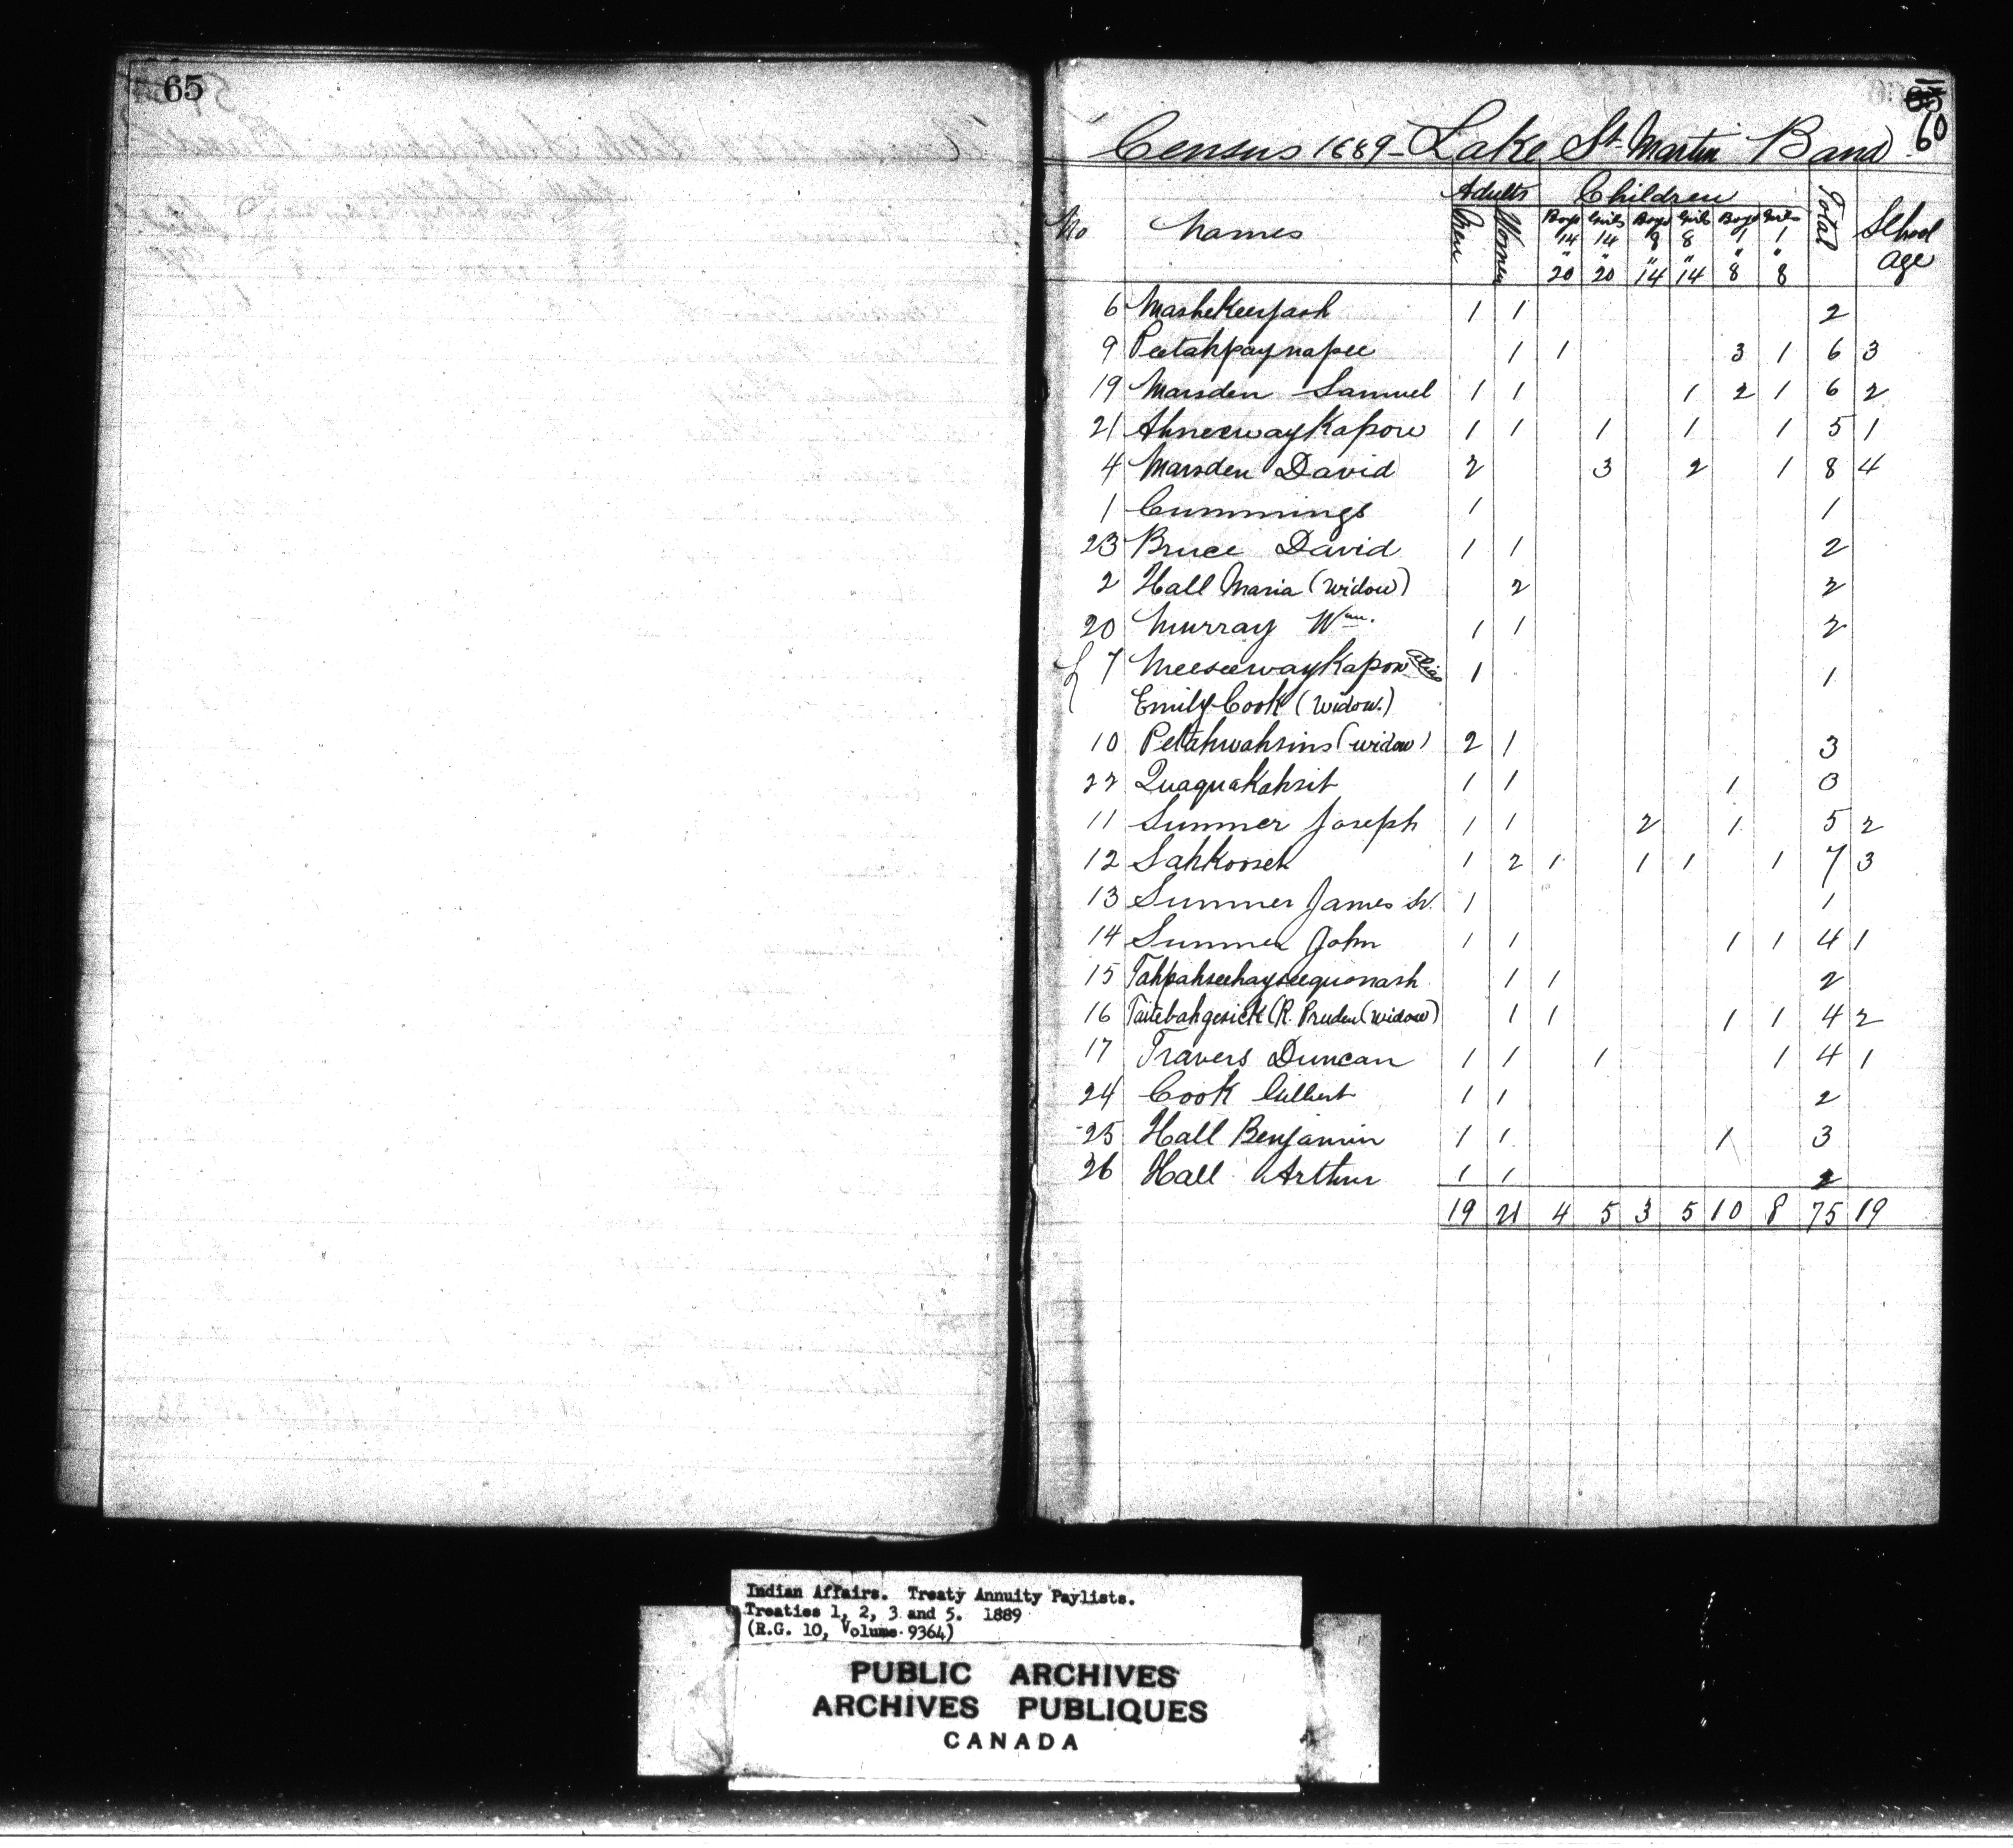 65
60
Census 1889 - Lake St. Martin Band
Adults Children Total School age
No Names Men Women Boys 14 " 20 Girls 14 " 20 Boys 8 " 14 Girls 8 " 14 Boys 1 " 8 Girls 1 " 8
6 Mashekeeyash 1 1 2
9 Peetahpaynapee 1 1 3 1 6 3
19 Marsden Samuel 1 1 1 2 1 6 2
21 Ahneewaykapow 1 1 1 1 1 5 1
4 Marsden David 2 3 2 1 8 4
1 Cummings 1 1
23 Bruce David 1 1 2
2 Hall Maria (widow) 2 2
20 Murray Wm. 1 1 2
7 Meeseewaykapow alias 1 1
Emily Cook (widow.)
10 Petahwahsins (widow) 2 1 3
22 Quaquakahsit 1 1 1 3
11 Sumner Joseph 1 1 2 1 5 2
12 Sahkooseh 1 2 1 1 1 1 7 3
13 Sumner James Sr. 1 1
14 Sumner John 1 1 1 1 4 1
15 Tahpahseehayseequonash 1 1 2
16 Taitebahgesick (R. Pruden (widow) 1 1 1 1 4 2
17 Travers Duncan 1 1 1 1 4 1
24 Cook Gilbert 1 1 2
25 Hall Benjamin 1 1 1 3
26 Hall Arthur 1 1 2
19 21 4 5 3 5 10 8 75 19
Indian Affairs. Treaty Annuity Paylists.
Treaties 1, 2, 3 and 5. 1889
(R.G. 10, Volume 9364)
PUBLIC ARCHIVES
ARCHIVES PUBLIQUES
CANADA